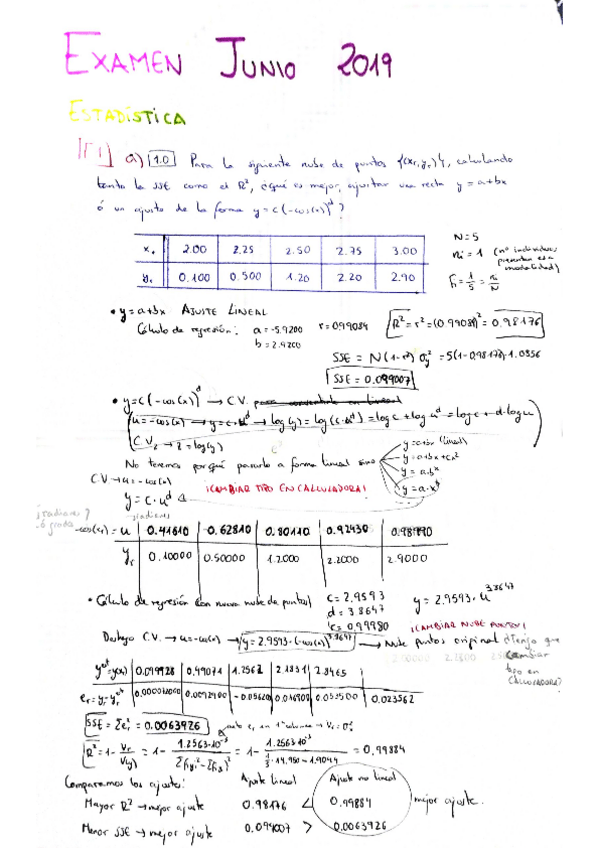 EXAMEN JUNIO 2019
ESTADÍSTICA
a) 1.0 Para la siguiente nube de puntos {(xi, yi)}, calculando
tanto la SSE como el R², ¿qué es mejor, ajustar una recta y = a+bx
ó un ajuste de la forma y = c(-cos(x))^d ?
xi 2.00 2.25 2.50 2.75 3.00
yi 0.100 0.500 1.20 2.20 2.90
N=5
ni = 1 (nº individuos
presentan esa
modalidad)
fi = 1/5 = ni/N
• y = a+bx AJUSTE LINEAL
Cálculo de regresión: a = -5.9200 r = 0.99084 R² = r² = (0.99084)² = 0.98176
b = 2.9200
SSE = N(1-r²) σy² = 5(1-0.98176)·1.0856
SSE = 0.099007
• y = c(-cos(x))^d → C.V.
u = -cos(x) → y = c·u^d → log(y) = log(c·u^d) = log c + log u^d = log c + d·log u
C.V. → z = log(y)
No tenemos por qué pasarlo a forma lineal sino
y = a+bx (lineal)
y = a+bx+cx²
y = a·b^x
y = a·x^b
C.V. → u = -cos(x)
y = c·u^d
¡CAMBIAR TIPO EN CALCULADORA!
¿radianes?
ó grados
radianes
-cos(xi) = u 0.41610 0.62810 0.80110 0.92430 0.98990
yi 0.10000 0.50000 1.2000 2.2000 2.9000
• Cálculo de regresión con nueva nube de puntos
c = 2.9593
d = 3.8647
r = 0.99980
y = 2.9593·u^3.8647
¡CAMBIAR NUBE PUNTOS!
Deshago C.V. → u = -cos(x) → y = 2.9593·(-cos(x))^3.8647 → Nube puntos original (tengo que
cambiar
tipo en
CALCULADORA)
y^est = y(xi) 0.099928 0.49071 1.2562 2.1831 2.8465
ei = yi - y^est 0.023562
SSE = Σei² = 0.0063926
R² = 1 - Vr/V(y) = 1 - 1.2563·10⁻³ = 1 - 1.2563·10⁻³ = 0.99884
1/5·14.950 - 1.9044
Comparamos los ajustes: Ajuste lineal Ajuste no lineal
Mayor R² → mejor ajuste 0.98176 < 0.99884 mejor ajuste.
Menor SSE → mejor ajuste 0.099007 > 0.0063926